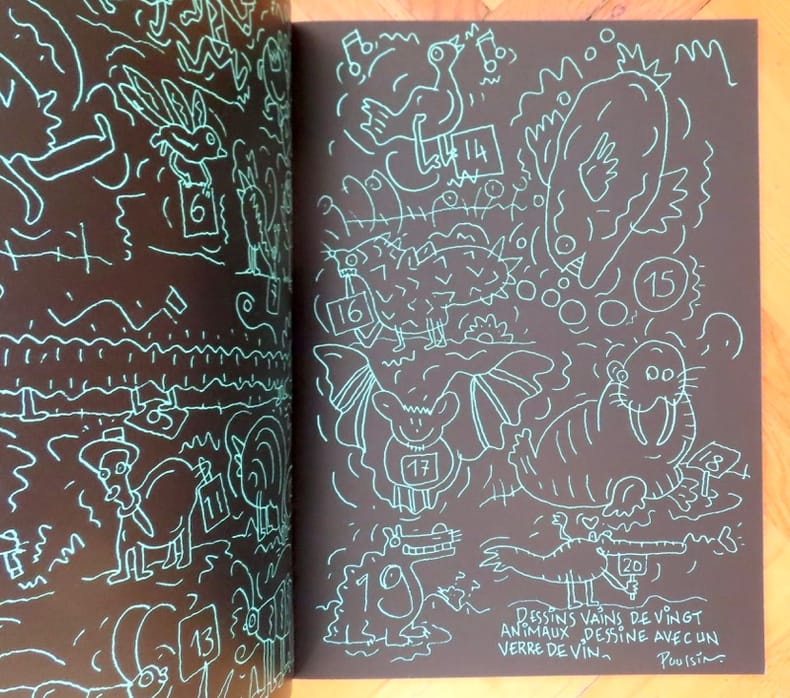 6
7
5
11
13
14
15
16
17
18
19
20
DESSINS VAINS DE VINGT
ANIMAUX DESSINE AVEC UN
VERRE DE VIN.